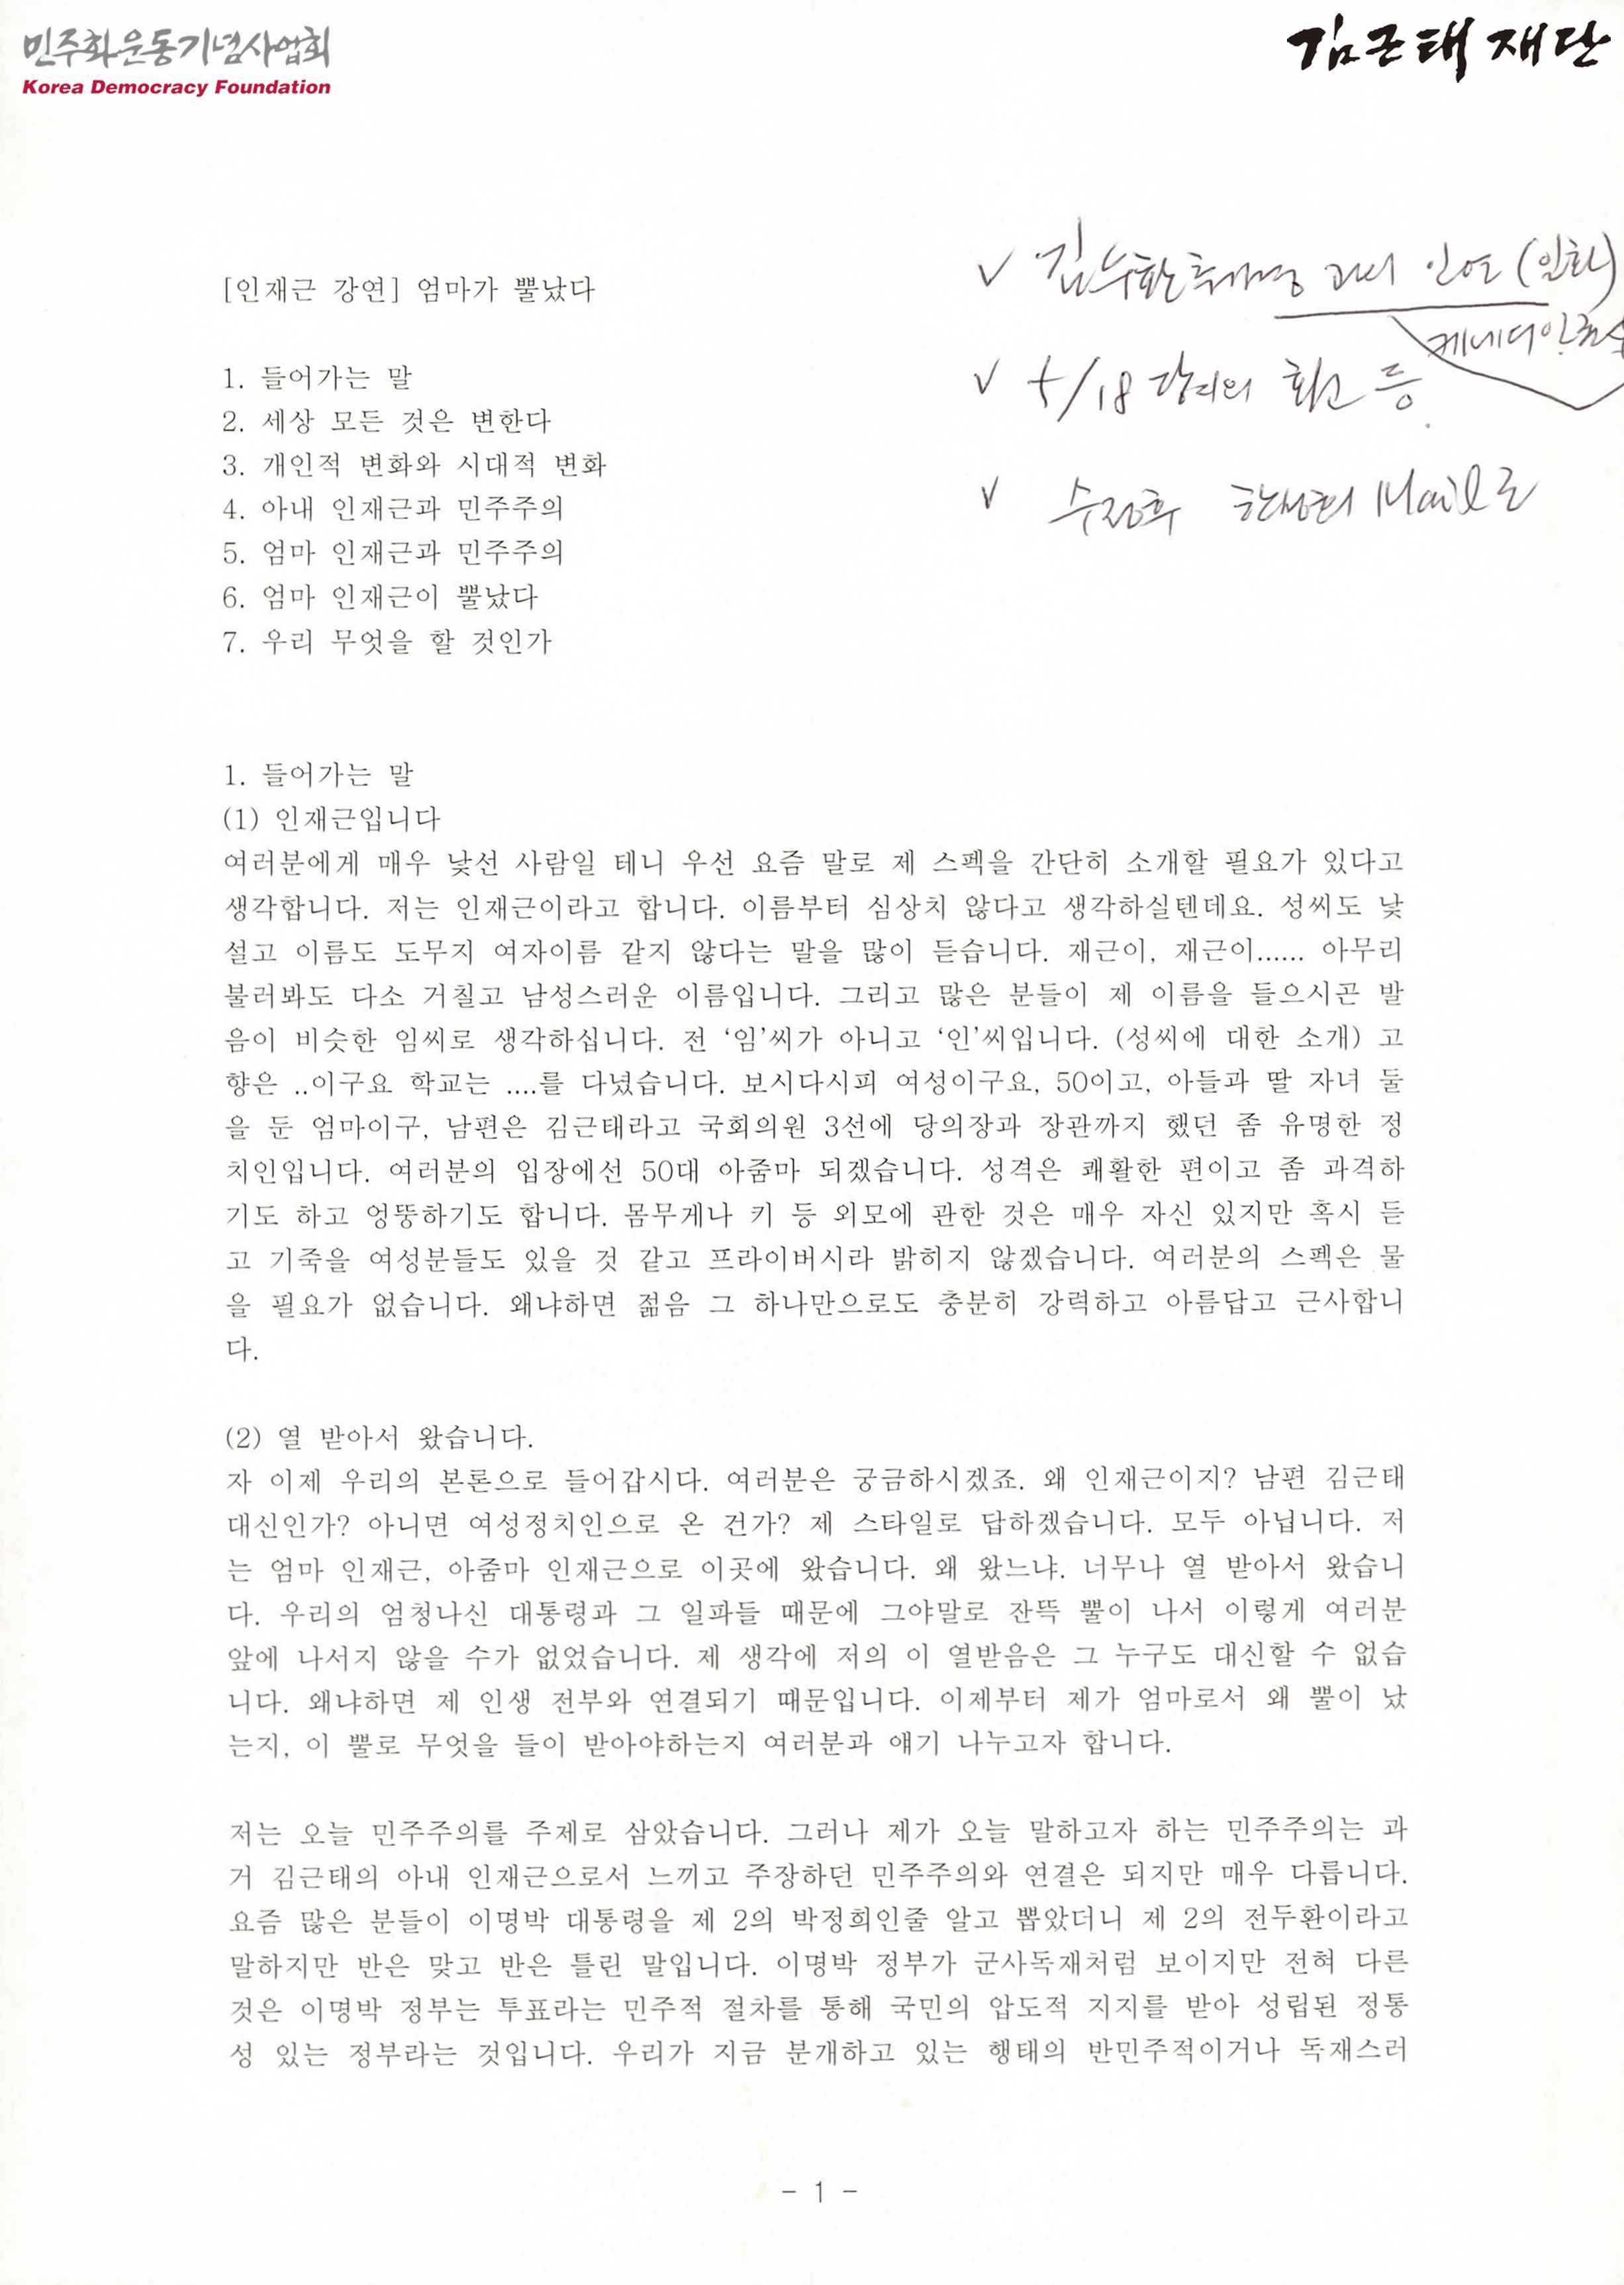 민주화운동기념사업회
Korea Democracy Foundation
김근태재단
✓ 김수환추기경 과의 인연 (일화)
케네디인권상
✓ 5/18 당시의 회고 등
✓ 수정후 Mail로
[인재근 강연] 엄마가 뿔났다
1. 들어가는 말
2. 세상 모든 것은 변한다
3. 개인적 변화와 시대적 변화
4. 아내 인재근과 민주주의
5. 엄마 인재근과 민주주의
6. 엄마 인재근이 뿔났다
7. 우리 무엇을 할 것인가
1. 들어가는 말
(1) 인재근입니다
여러분에게 매우 낯선 사람일 테니 우선 요즘 말로 제 스펙을 간단히 소개할 필요가 있다고
생각합니다. 저는 인재근이라고 합니다. 이름부터 심상치 않다고 생각하실텐데요. 성씨도 낯
설고 이름도 도무지 여자이름 같지 않다는 말을 많이 듣습니다. 재근이, 재근이...... 아무리
불러봐도 다소 거칠고 남성스러운 이름입니다. 그리고 많은 분들이 제 이름을 들으시곤 발
음이 비슷한 임씨로 생각하십니다. 전 ‘임’씨가 아니고 ‘인’씨입니다. (성씨에 대한 소개) 고
향은 ..이구요 학교는 ....를 다녔습니다. 보시다시피 여성이구요, 50이고, 아들과 딸 자녀 둘
을 둔 엄마이구, 남편은 김근태라고 국회의원 3선에 당의장과 장관까지 했던 좀 유명한 정
치인입니다. 여러분의 입장에선 50대 아줌마 되겠습니다. 성격은 쾌활한 편이고 좀 과격하
기도 하고 엉뚱하기도 합니다. 몸무게나 키 등 외모에 관한 것은 매우 자신 있지만 혹시 듣
고 기죽을 여성분들도 있을 것 같고 프라이버시라 밝히지 않겠습니다. 여러분의 스펙은 물
을 필요가 없습니다. 왜냐하면 젊음 그 하나만으로도 충분히 강력하고 아름답고 근사합니
다.
(2) 열 받아서 왔습니다.
자 이제 우리의 본론으로 들어갑시다. 여러분은 궁금하시겠죠. 왜 인재근이지? 남편 김근태
대신인가? 아니면 여성정치인으로 온 건가? 제 스타일로 답하겠습니다. 모두 아닙니다. 저
는 엄마 인재근, 아줌마 인재근으로 이곳에 왔습니다. 왜 왔느냐. 너무나 열 받아서 왔습니
다. 우리의 엄청나신 대통령과 그 일파들 때문에 그야말로 잔뜩 뿔이 나서 이렇게 여러분
앞에 나서지 않을 수가 없었습니다. 제 생각에 저의 이 열받음은 그 누구도 대신할 수 없습
니다. 왜냐하면 제 인생 전부와 연결되기 때문입니다. 이제부터 제가 엄마로서 왜 뿔이 났
는지, 이 뿔로 무엇을 들이 받아야하는지 여러분과 얘기 나누고자 합니다.
저는 오늘 민주주의를 주제로 삼았습니다. 그러나 제가 오늘 말하고자 하는 민주주의는 과
거 김근태의 아내 인재근으로서 느끼고 주장하던 민주주의와 연결은 되지만 매우 다릅니다.
요즘 많은 분들이 이명박 대통령을 제 2의 박정희인줄 알고 뽑았더니 제 2의 전두환이라고
말하지만 반은 맞고 반은 틀린 말입니다. 이명박 정부가 군사독재처럼 보이지만 전혀 다른
것은 이명박 정부는 투표라는 민주적 절차를 통해 국민의 압도적 지지를 받아 성립된 정통
성 있는 정부라는 것입니다. 우리가 지금 분개하고 있는 행태의 반민주적이거나 독재스러
- 1 -